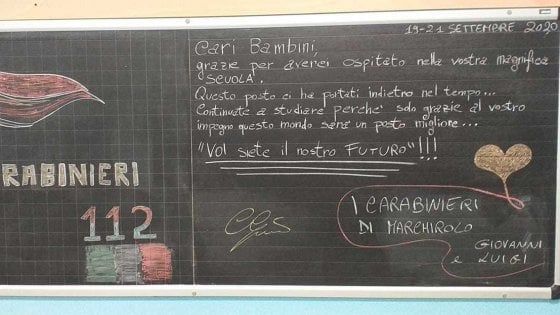 19-21 SETTEMBRE 2020
Cari Bambini,
grazie per averci ospitato nella vostra magnifica
SCUOLA.
Questo posto ci ha portati indietro nel tempo...
Continuate a studiare perche' solo grazie al vostro
impegno questo mondo sarà un posto migliore...
"VOI siete il nostro FUTURO"!!!
RABINIERI
112
I CARABINIERI
DI MARCHIROLO
GIOVANNI
e LUIGI